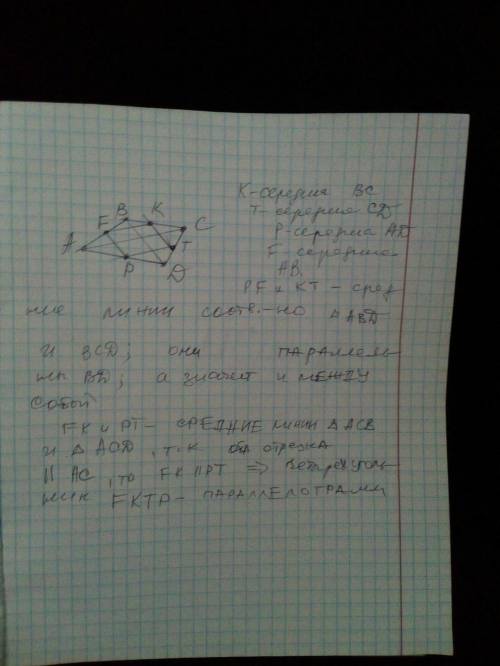 B K
F C
A T
P D
K-середина BC
T-середина CD
P-середина AD
F середина
AB.
PF и KT - сред
ние линии соотв.-но △ABD
и BCD; они параллель
ны BD; а значит и между
собой
FK и PT- средние линии △ACB
и △ACD, т.к оба отрезка
|| AC, то FK || PT => четырёхуголь
ник FKTP- параллелограмм